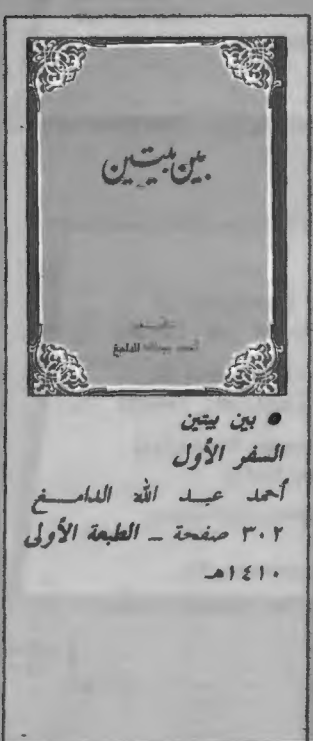 بين بيتين
تأليف
أحمد عبدالله الدامغ
● بين بيتين
السفر الأول
أحمد عبد الله الدامغ
٣٠٢ صفحة ــ الطبعة الأولى
١٤١٠هـ